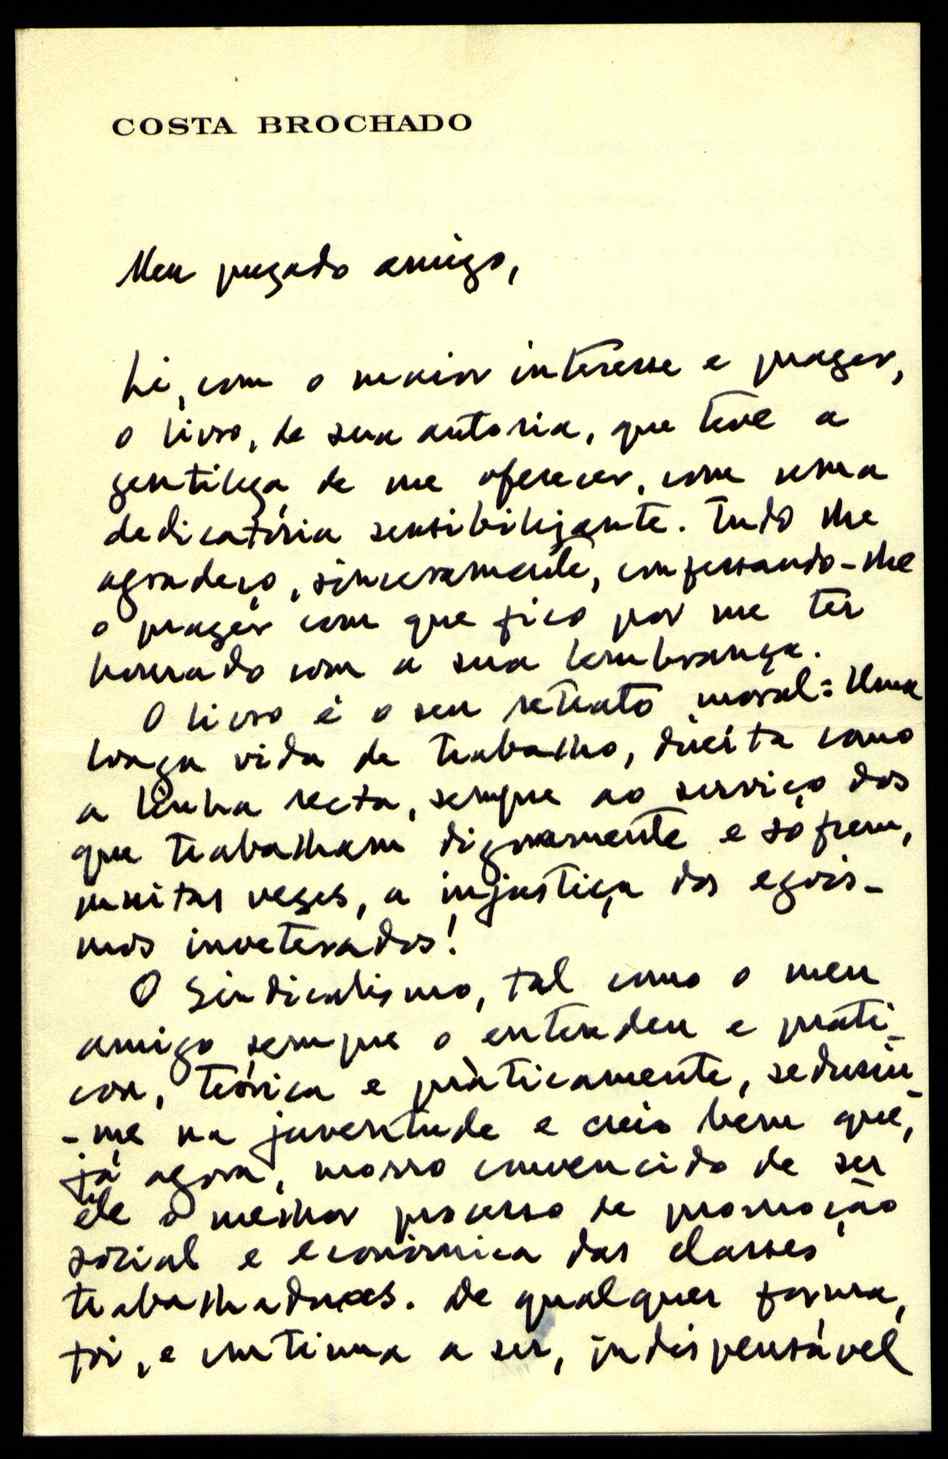 COSTA BROCHADO
Meu prezado amigo,
Li, com o maior interesse e prazer,
o livro, de sua autoria, que teve a
gentileza de me oferecer, com uma
dedicatória sensibilizante. Tudo lhe
agradeço, sinceramente, confessando-lhe
o prazer com que fico por me ter
honrado com a sua lembrança.
O livro é o seu retrato moral: Uma
longa vida de trabalho, direita como
a linha recta, sempre ao serviço dos
que trabalham dignamente e sofrem,
muitas vezes, a injustiça dos egoís-
mos inveterados!
O Sindicalismo, tal como o meu
amigo sempre o entendeu e prati-
cou, teórica e pràticamente, seduziu-
-me na juventude e creio bem que,
já agora, morro convencido de ser
ele o melhor processo de promoção
social e económica das classes
trabalhadoras. De qualquer forma,
foi, e continua a ser, indispensável